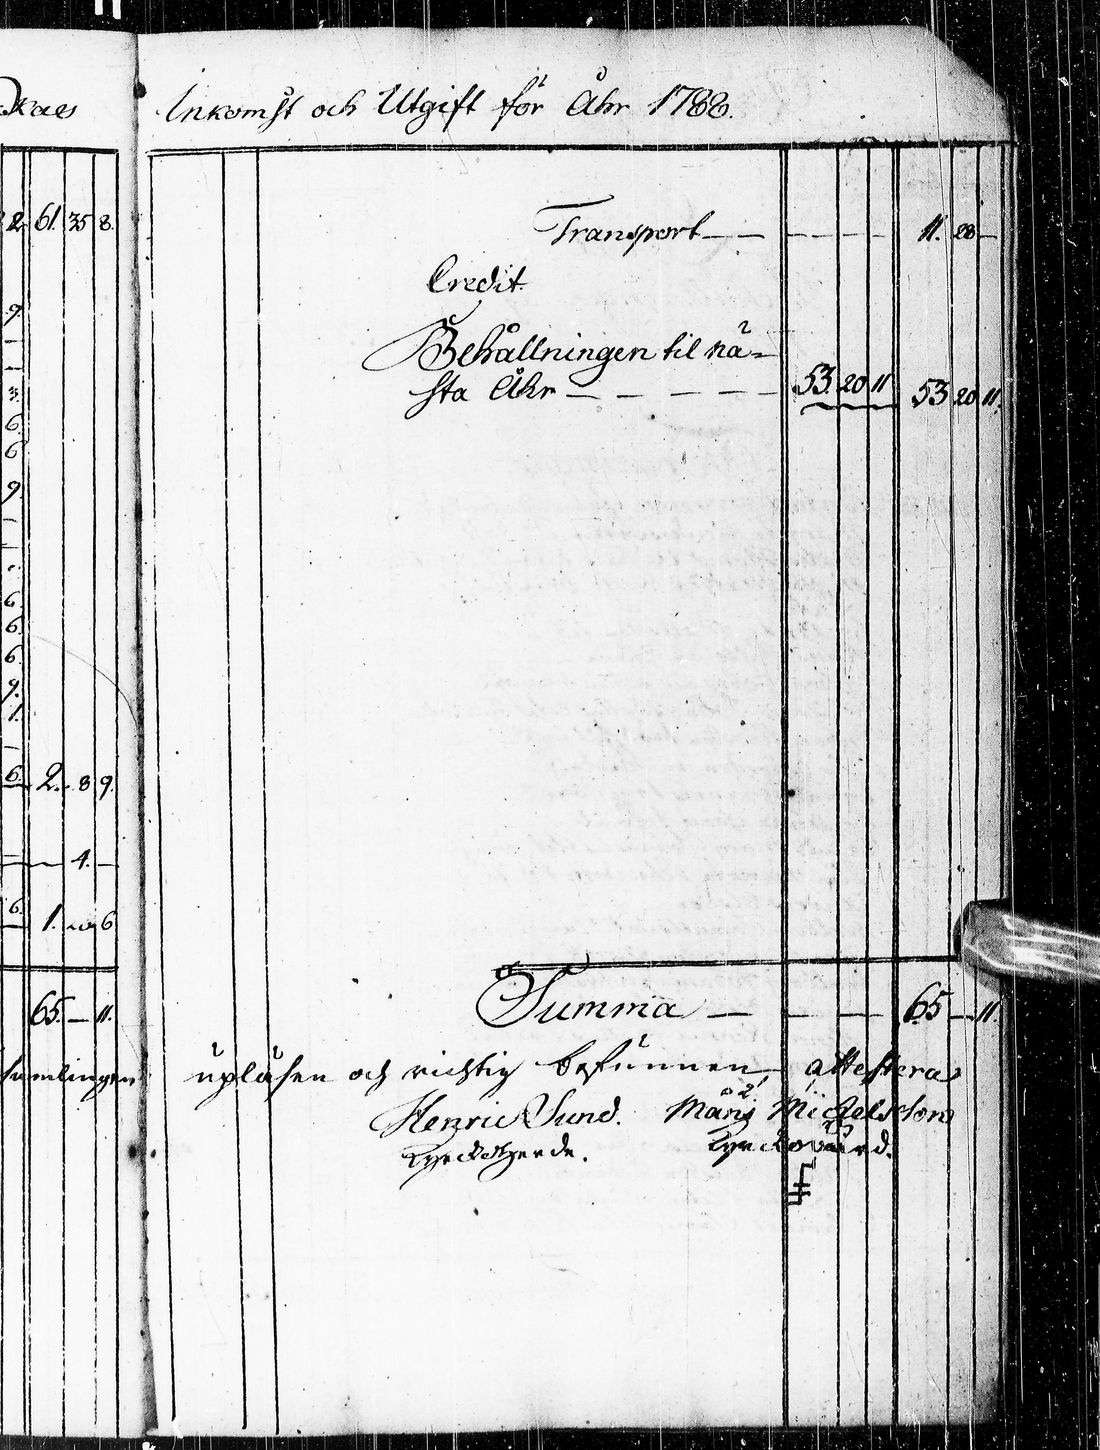 Skaes
2 61. 35 8.
9.
3.
6
6
9
6
6.
6
9.
1.
6. 2. 8 9.
4. —
6. 1. 6
65. — 11.
Inkomst och Utgift för Åhr 1788.
Transport — — — — — 11. 28 —
Credit.
Behållningen til nä-
sta Åhr — — — — — 53. 20 11 53 20 11.
Summa — — — — 65 — 11.
upläsen och richtig befunnen attestera
Henric Sund. Måns Michelsson
Kyrckoherde. Kyrckovärd.